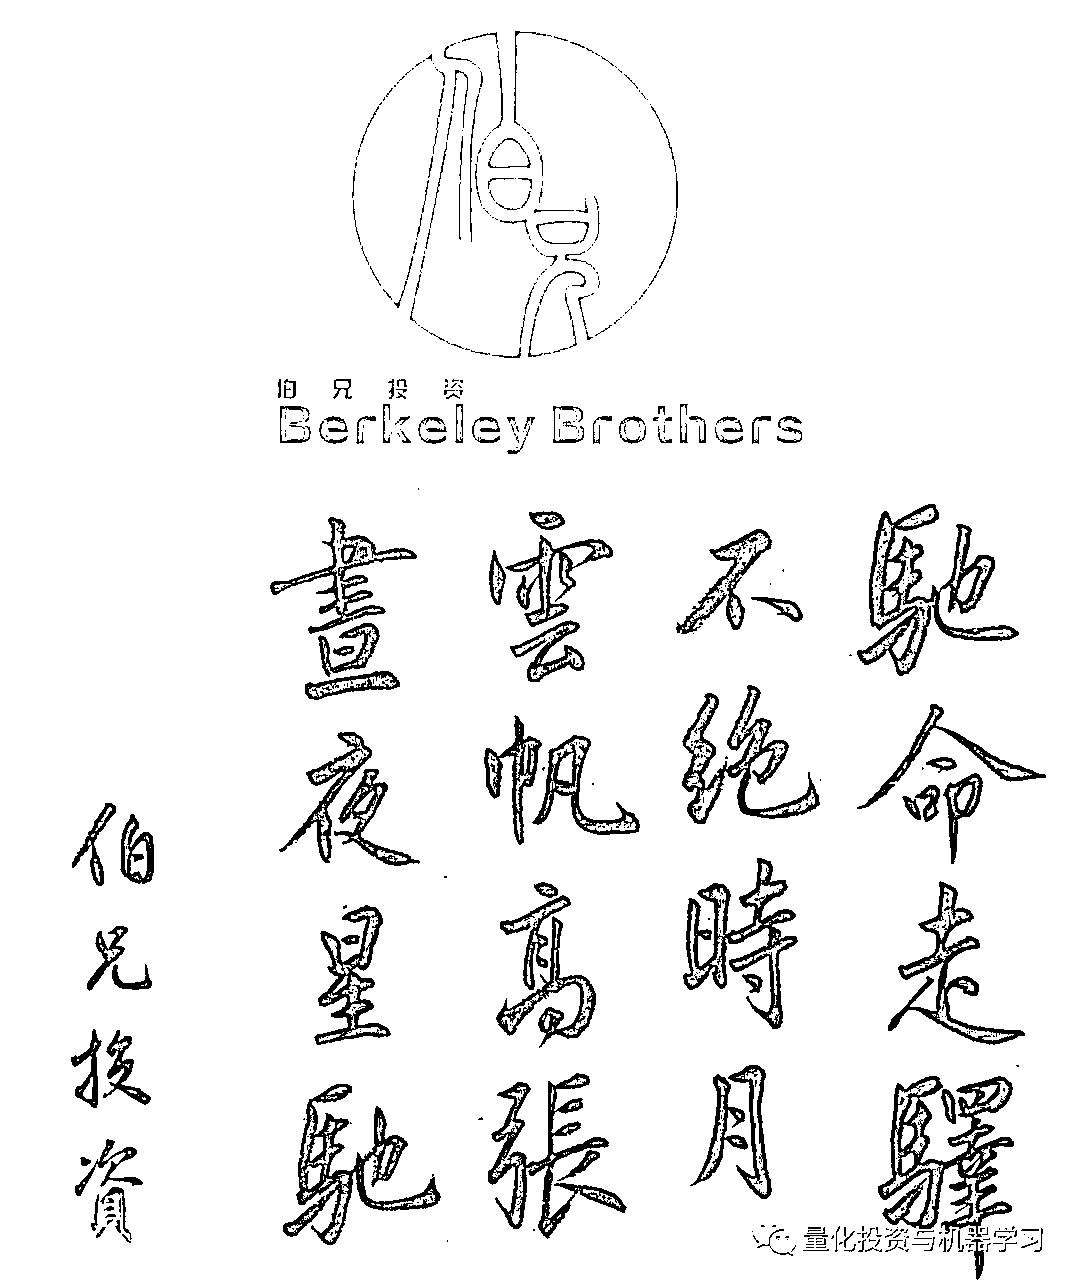 伯兄投资
Berkeley Brothers
馳命走驛
不絕時月
雲帆高張
晝夜星馳
伯兄投資
量化投资与机器学习